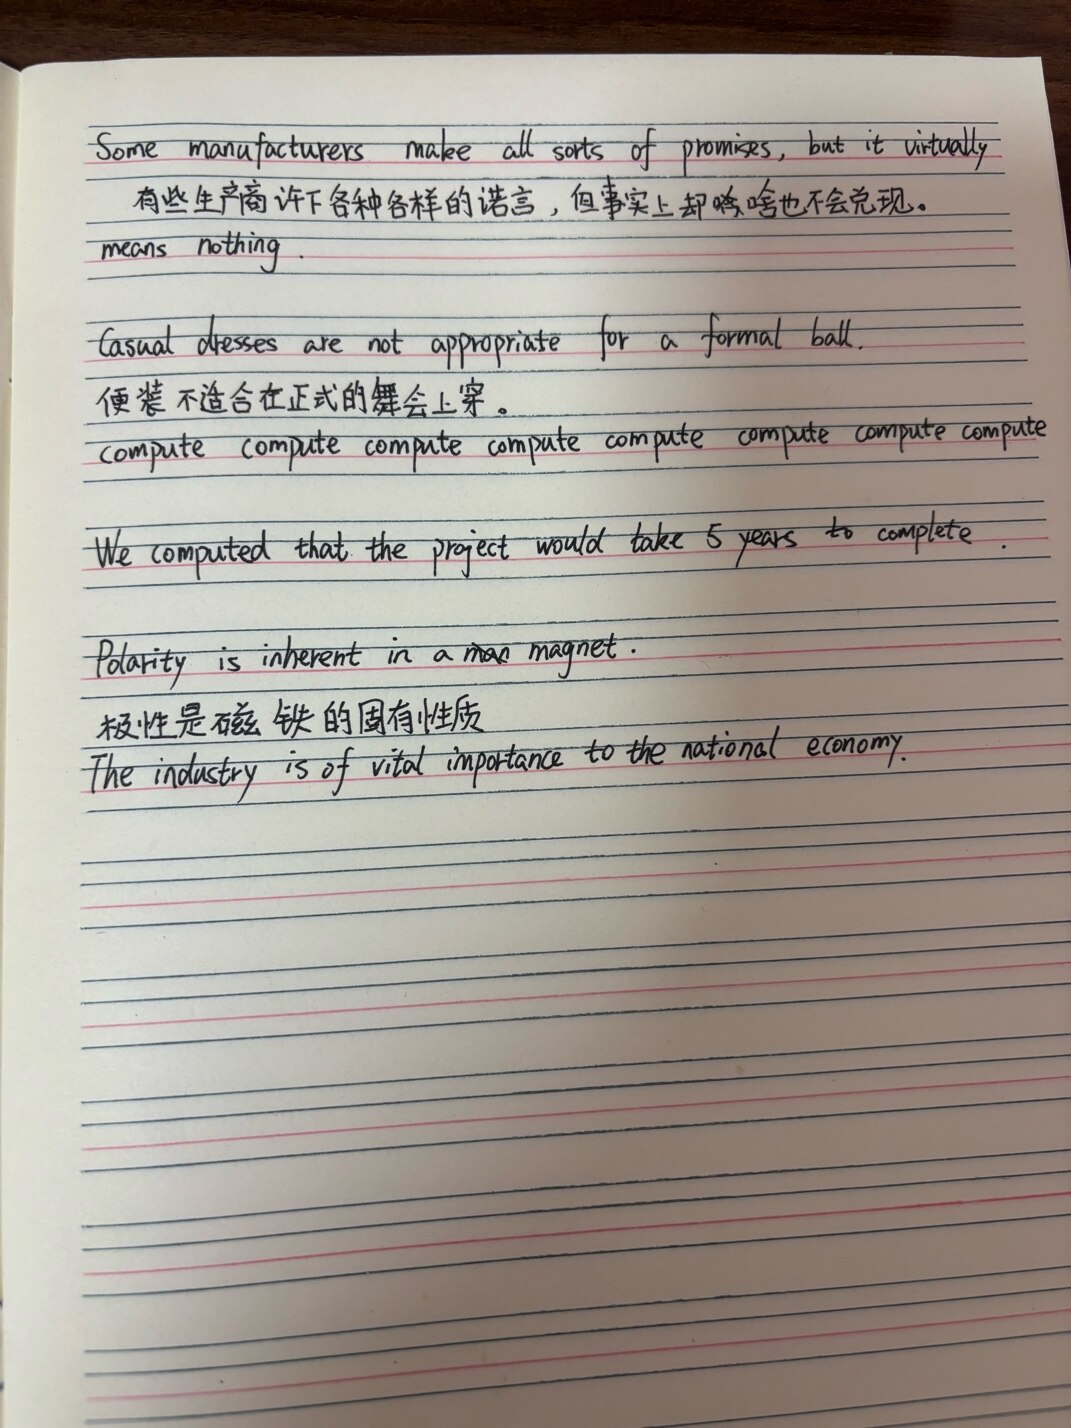 Some manufacturers make all sorts of promises, but it virtually
有些生产商许下各种各样的诺言，但事实上却啥也不会兑现。
means nothing.
Casual dresses are not appropriate for a formal ball.
便装不适合在正式的舞会上穿。
compute compute compute compute compute compute compute compute
We computed that the project would take 5 years to complete.
Polarity is inherent in a magnet.
极性是磁铁的固有性质
The industry is of vital importance to the national economy.